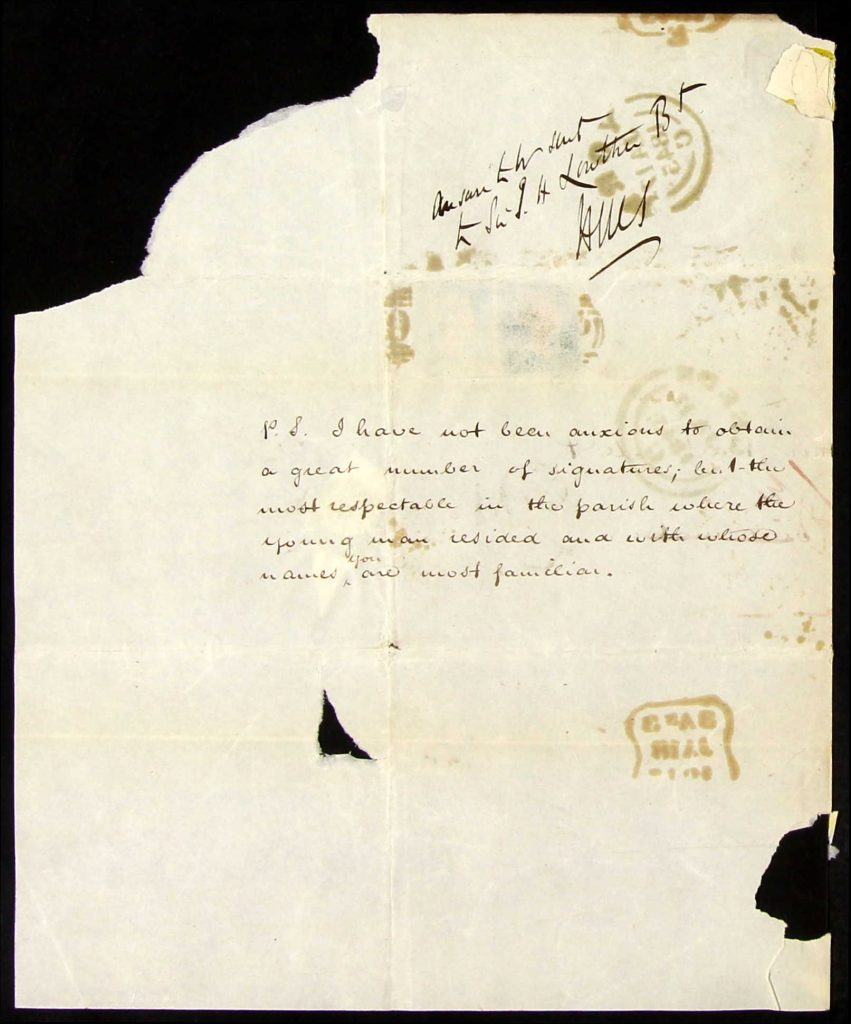 Answer to be sent
to Sir J. H Lowther Bt
HMS
P. S. I have not been anxious to obtain
a great number of signatures; but the
most respectable in the parish where the
young man resided and with whose
names, you are most familiar.